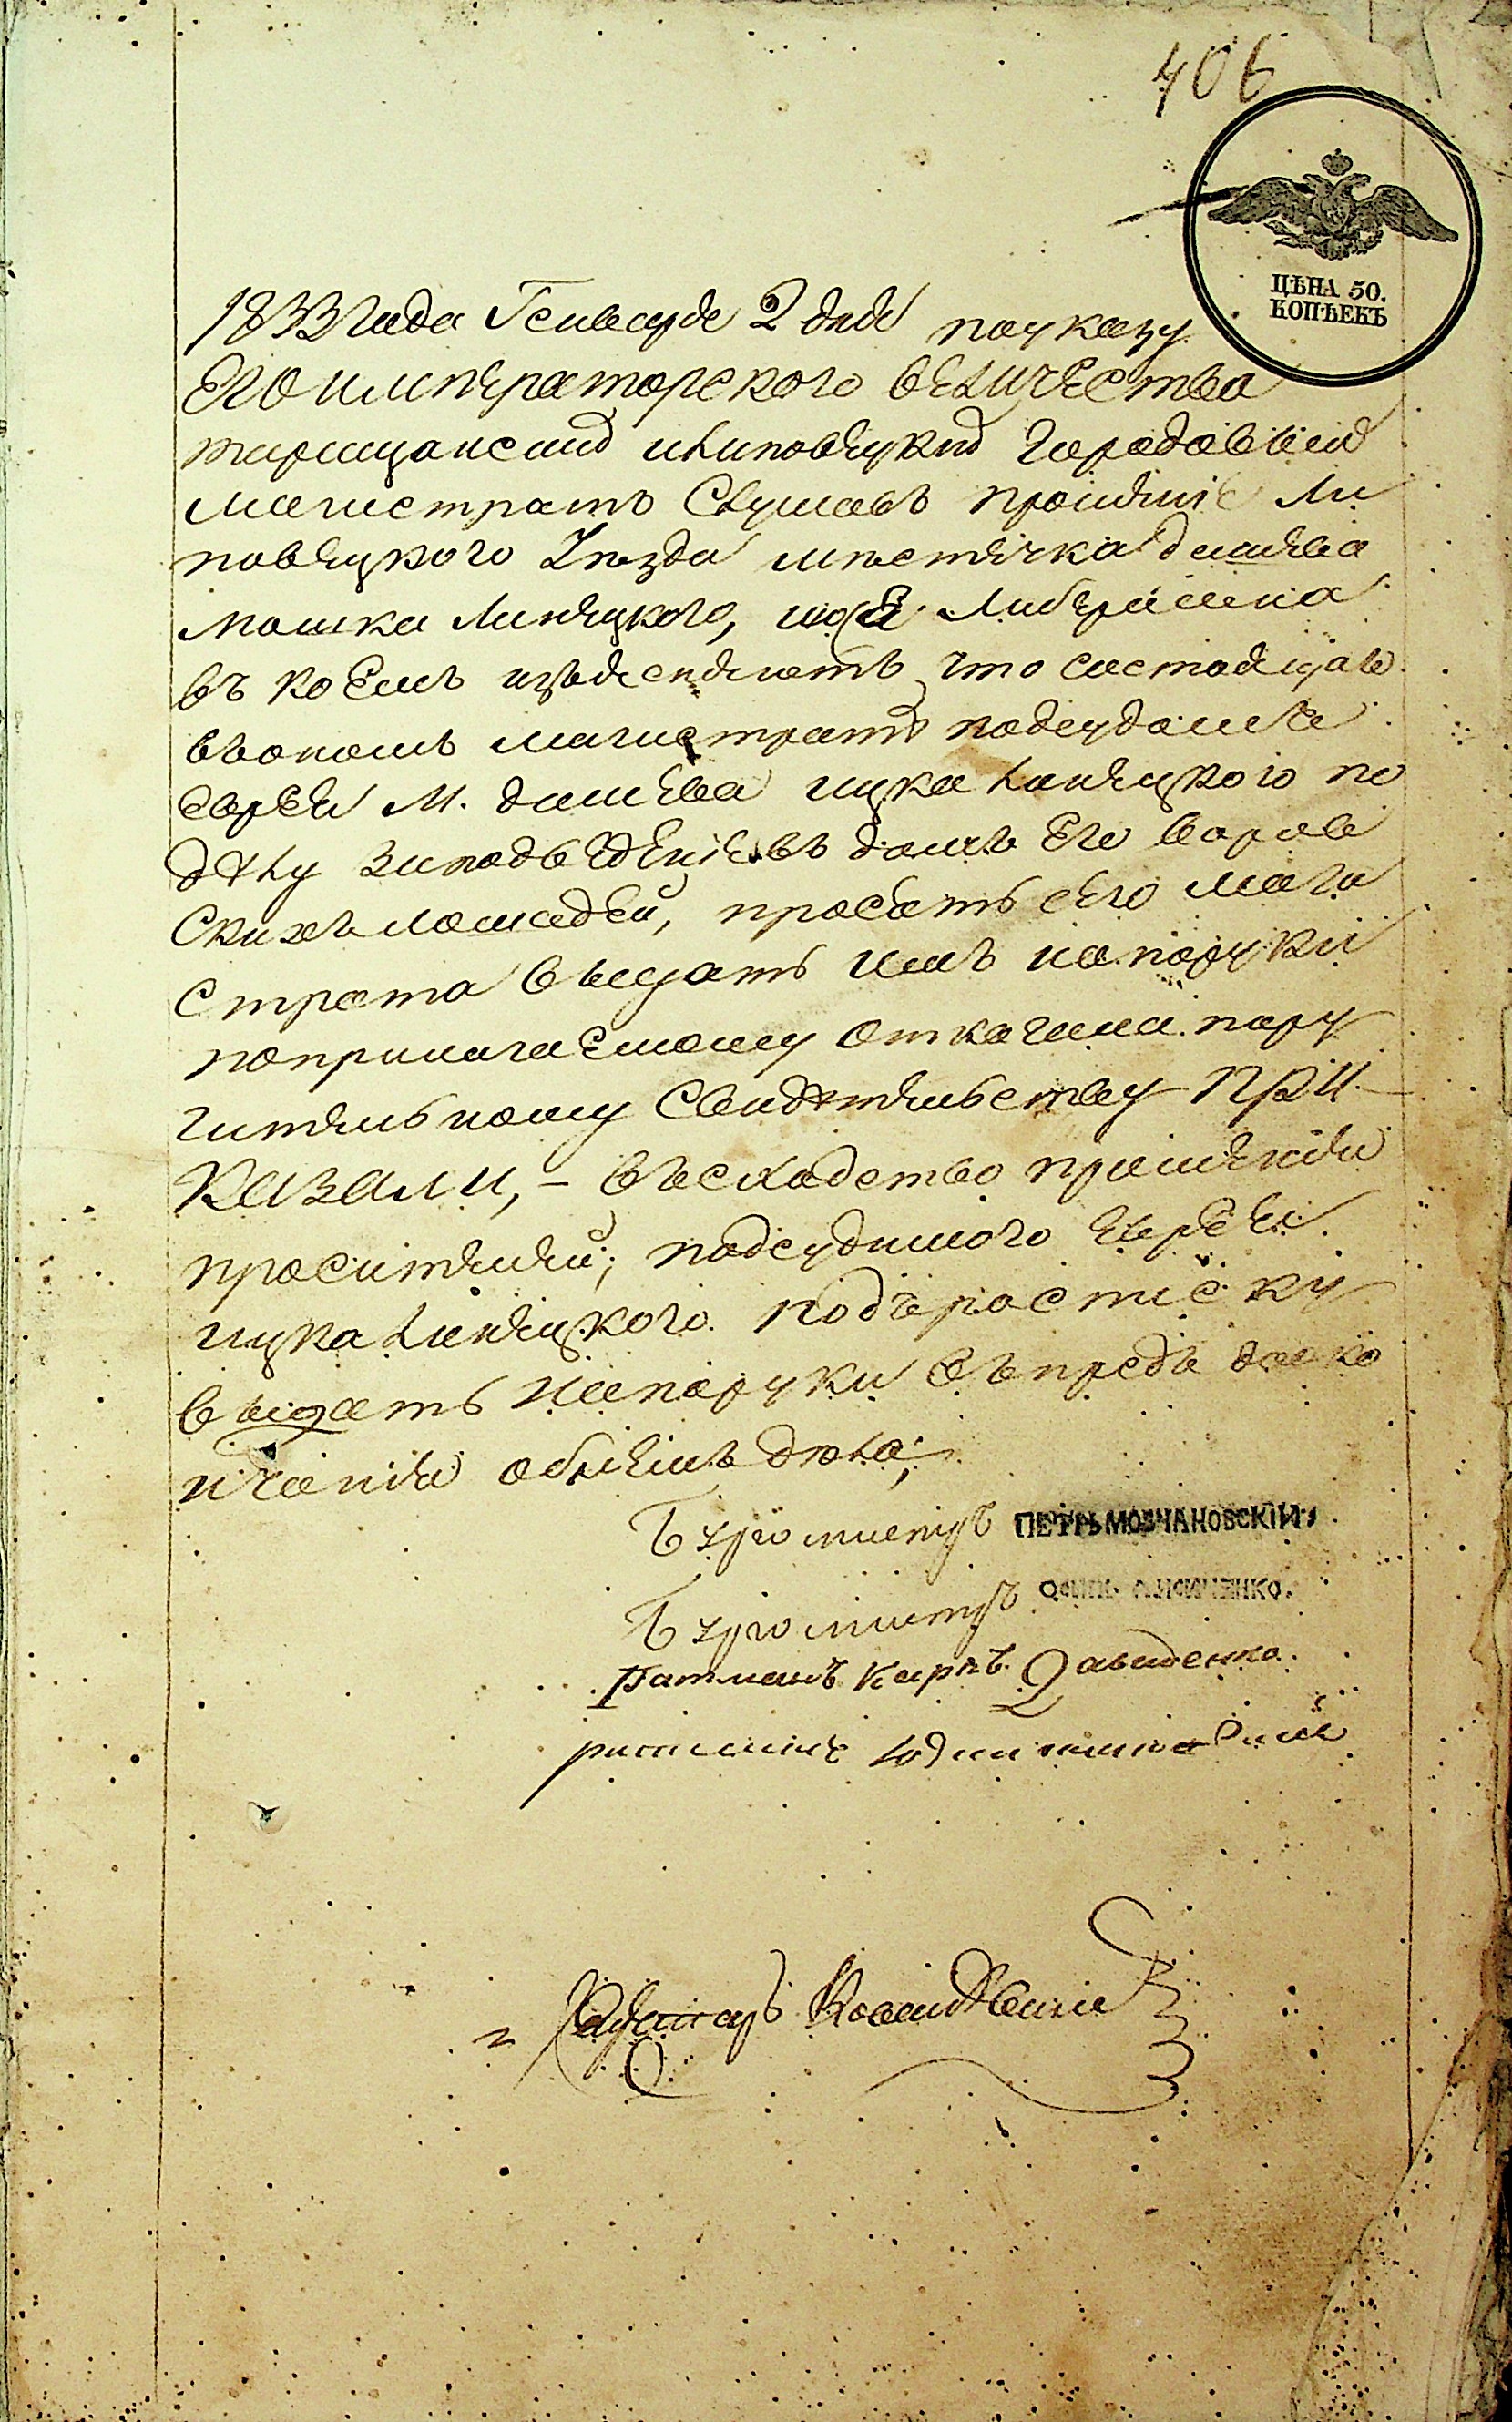 406
ЦѢНА 50.
КОПѢЕКЪ
1833 года Генваря 2 дня по указу
ЕГО ИМПЕРАТОРСКОГО ВЕЛИЧЕСТВА
липовецкий городовый
магистратъ Слушавъ прошение Ли
повецкого Уѣзда мѣстечка дашева
Мошка Линецкого, Либермана
въ коемъ изъясняютъ что состоящаго
въономъ магистратѣ подсудомъ
еврея М. дашева ицка Линецкого по
дѣлу заподведение въ домъ Его воров
скихъ лошадей, просятъ сего маги
страта выдать имъ напоруки
поприлагаемому откагала пору
чительному Свидѣтельству ПРИ
КАЗАЛИ, – въсходство прошения
просителей; подсудимого еврея
ицка Линецкого подърасписку
выдать напоруки въпредь доко
нчания обнемъ дѣла;
Бургомистръ ПЕТРЪ МОВЧАНОВСКІЙ
Бургомистръ
Ратманъ Карпъ Давиденко
ратманъ
Секретарь